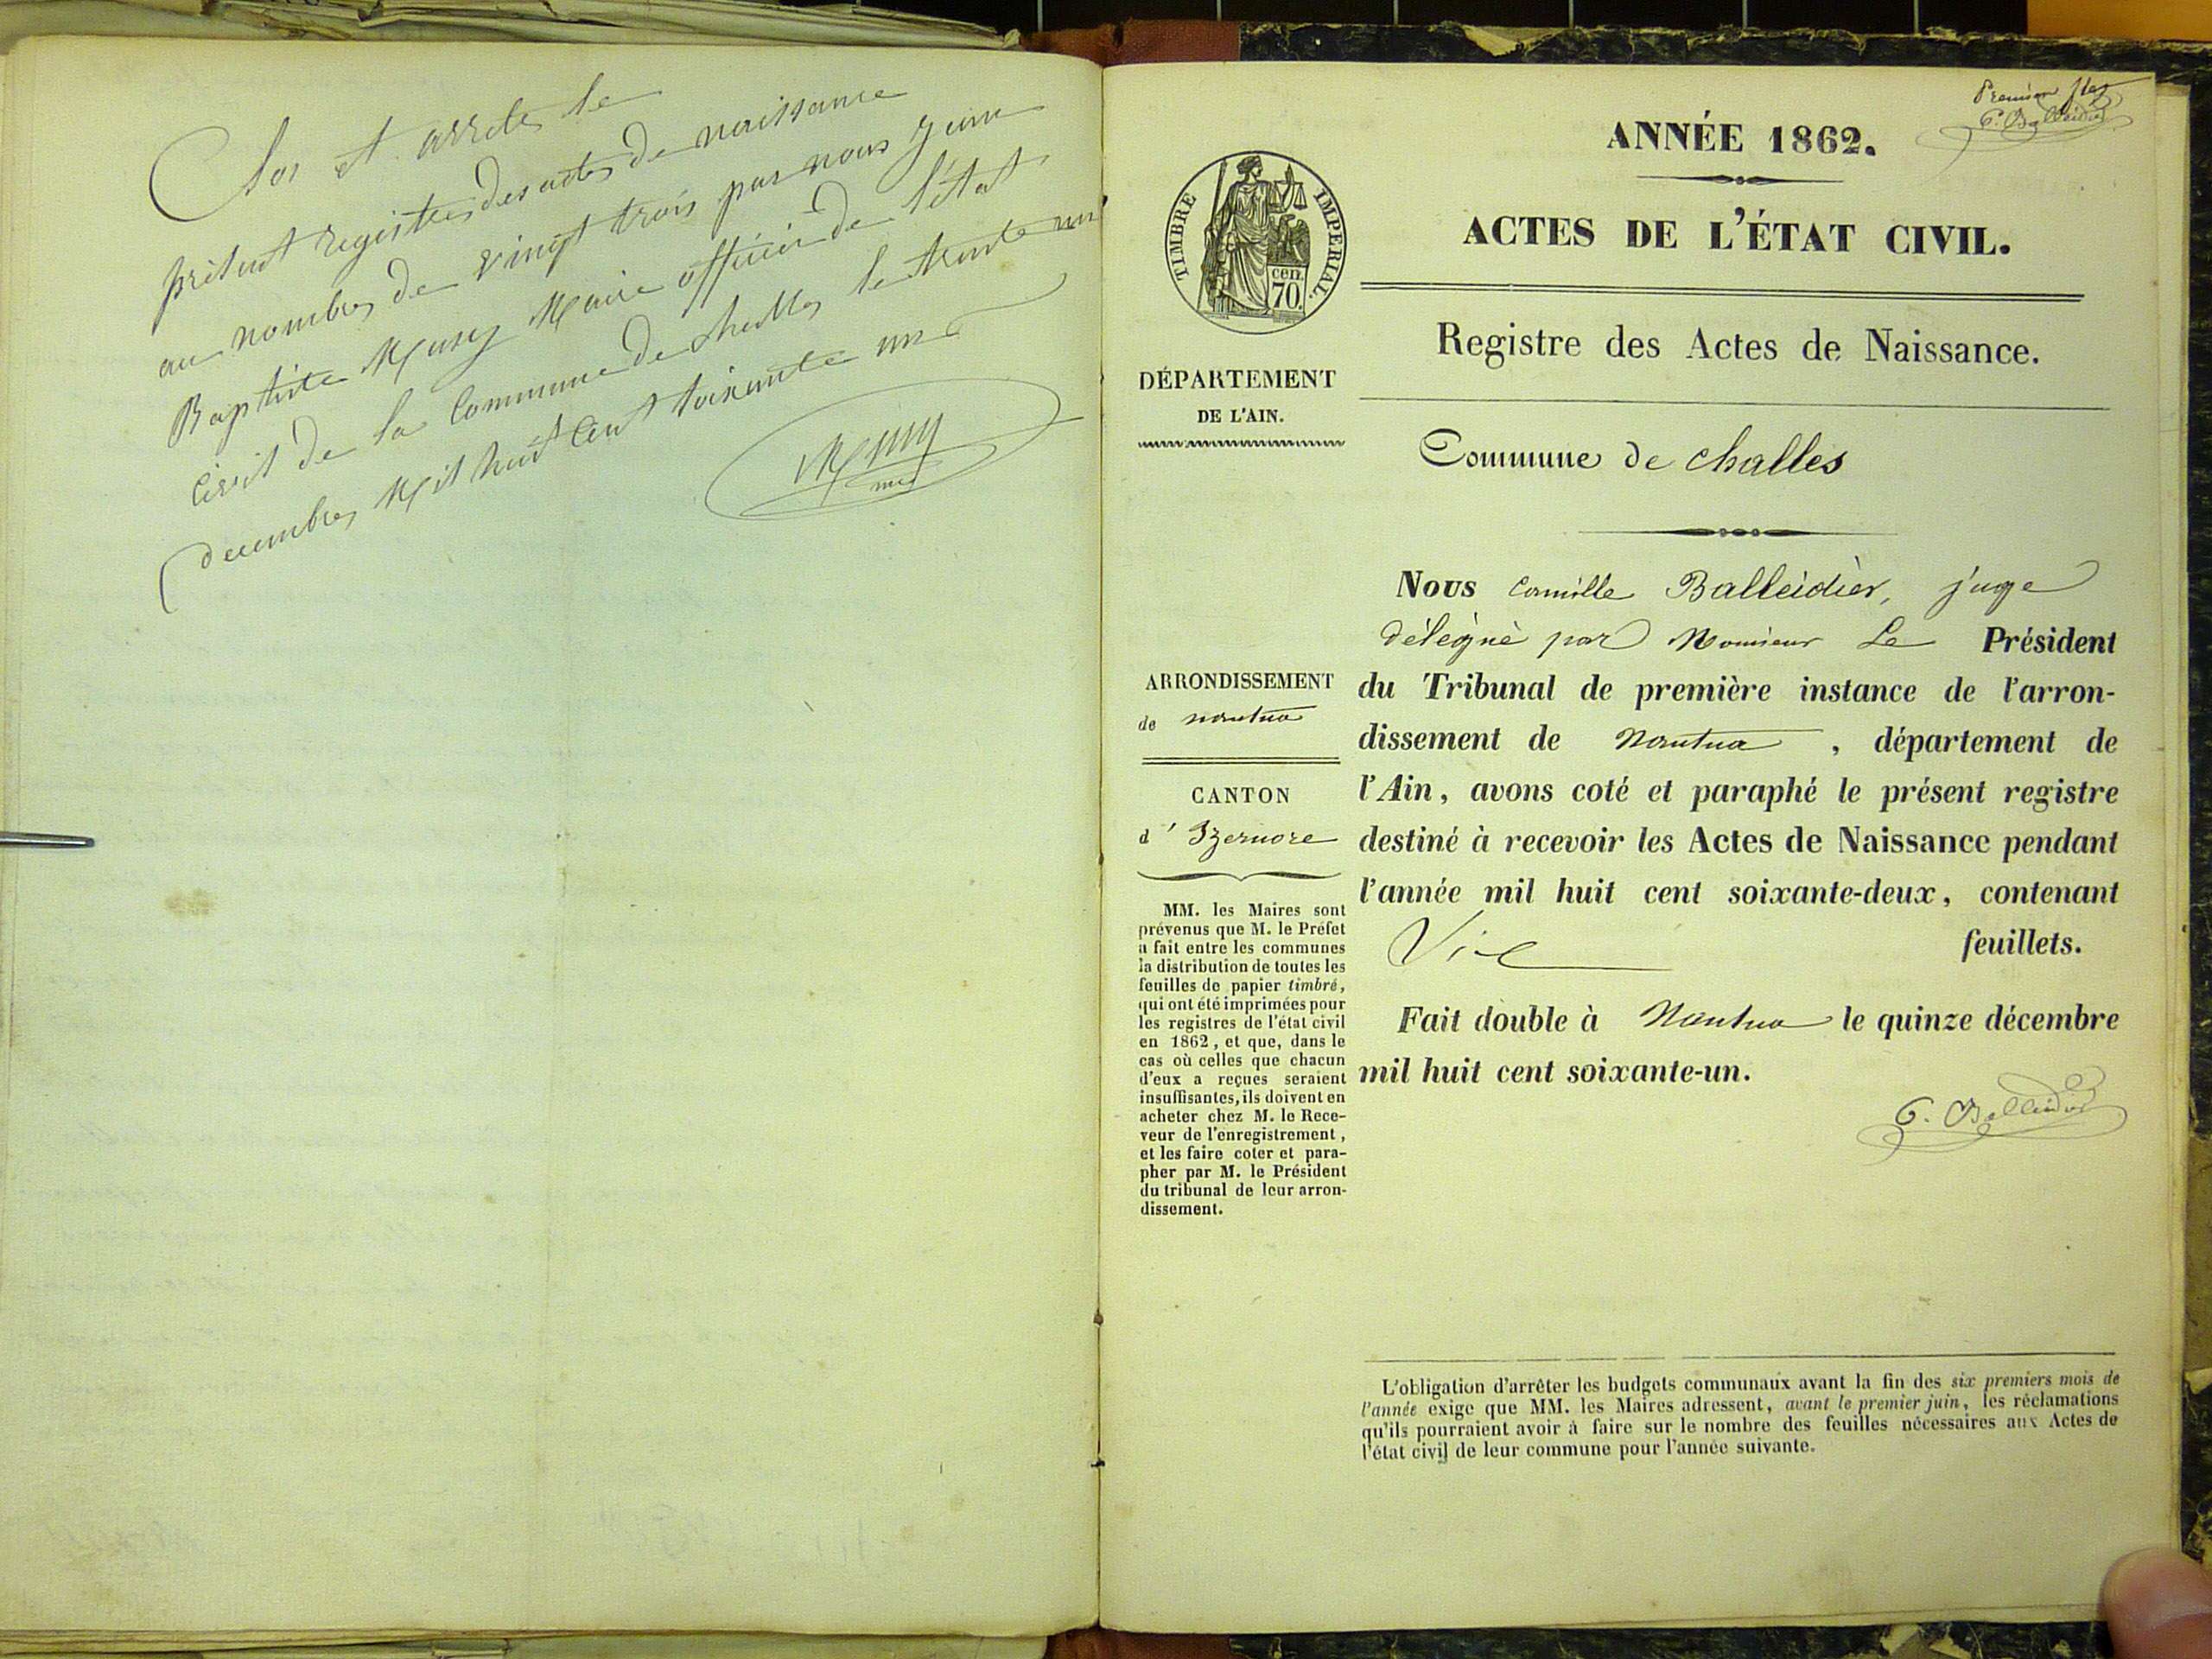 Clos et arrêté le
présent registre des actes de naissance
au nombre de vingt trois par nous Jean
Baptiste Musy Maire officier de l'état
Civil de la Commune de challes le trente un
décembre Mil huit Cent soixante un
Musy
Premier flet
C. Balleidier
ANNÉE 1862.
ACTES DE L'ÉTAT CIVIL.
TIMBRE IMPERIAL.
cen.
70.
Registre des Actes de Naissance.
DÉPARTEMENT
DE L'AIN.
Commune de challes
ARRONDISSEMENT
de nantua
CANTON
d' Izernore
MM. les Maires sont
prévenus que M. le Préfet
a fait entre les communes
la distribution de toutes les
feuilles de papier timbré,
qui ont été imprimées pour
les registres de l'état civil
en 1862, et que, dans le
cas où celles que chacun
d'eux a reçues seraient
insuffisantes, ils doivent en
acheter chez M. le Rece-
veur de l'enregistrement,
et les faire coter et para-
pher par M. le Président
du tribunal de leur arron-
dissement.
Nous Camille Balleidier, juge
délégué par Monsieur Le Président
du Tribunal de première instance de l'arron-
dissement de Nantua, département de
l'Ain, avons coté et paraphé le présent registre
destiné à recevoir les Actes de Naissance pendant
l'année mil huit cent soixante-deux, contenant
feuillets.
Fait double à Nantua le quinze décembre
mil huit cent soixante-un.
C. Balleidier
L'obligation d'arrêter les budgets communaux avant la fin des six premiers mois de
l'année exige que MM. les Maires adressent, avant le premier juin, les réclamations
qu'ils pourraient avoir à faire sur le nombre des feuilles nécessaires aux Actes de
l'état civil de leur commune pour l'année suivante.